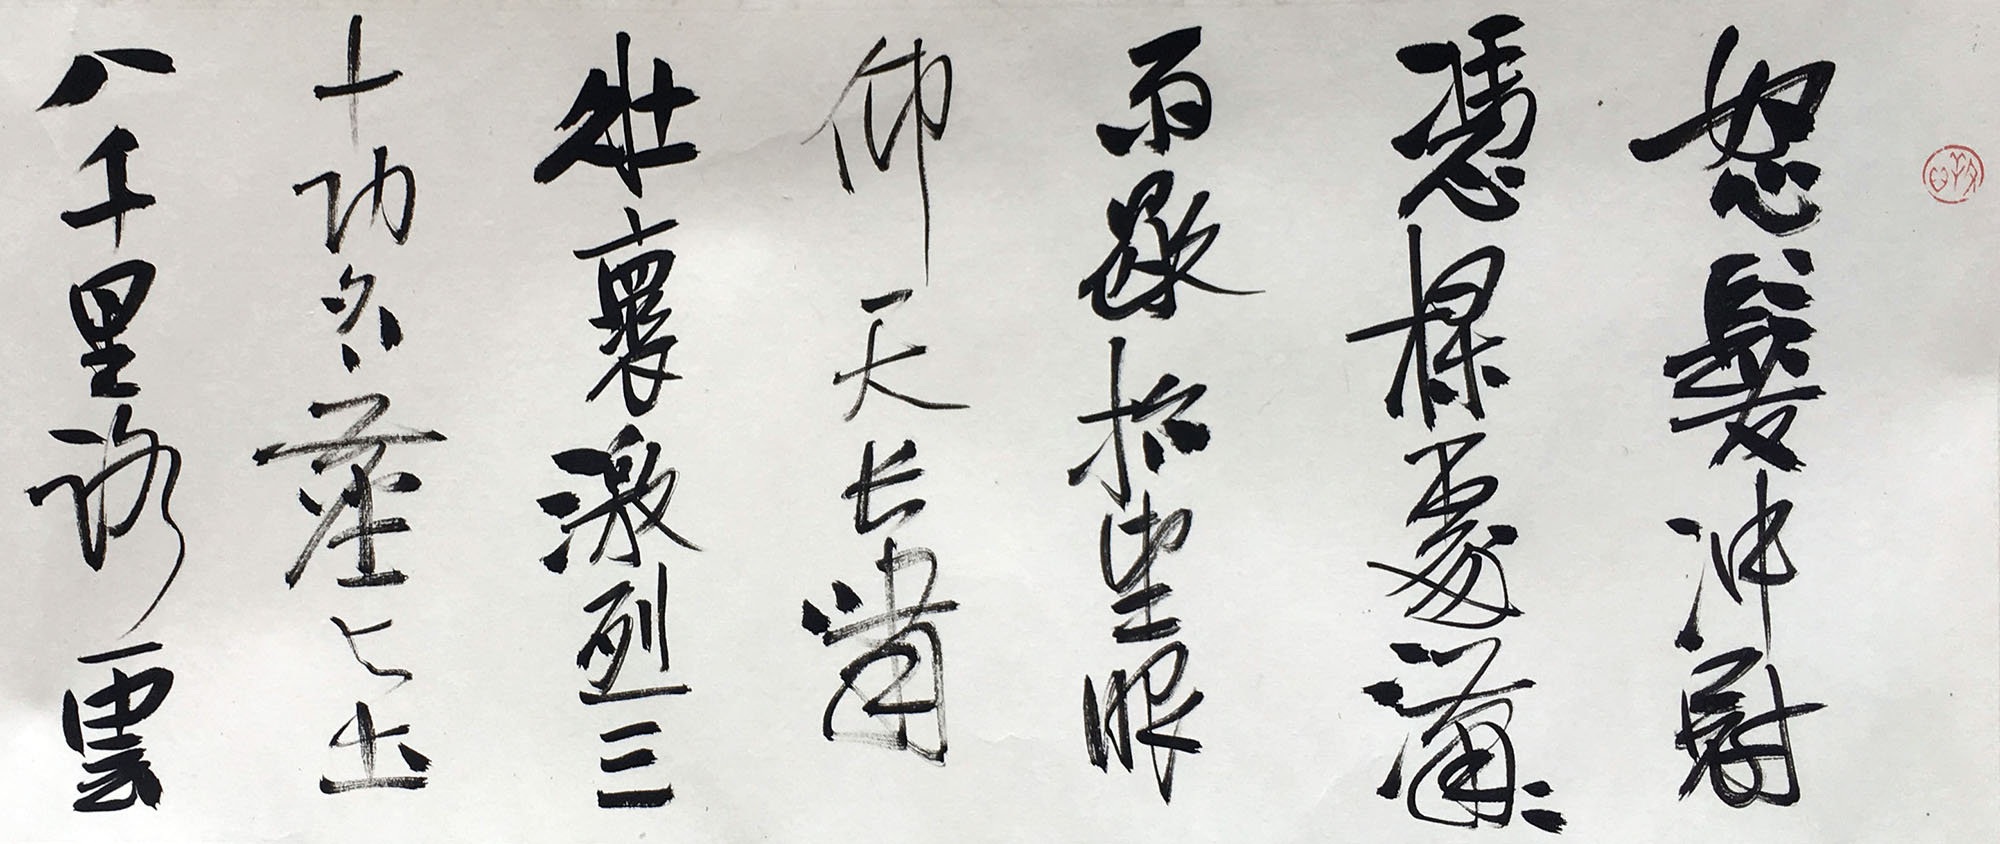 怒髮沖冠
憑欄處瀟〻
雨歇抬望眼
仰天长嘯
壯褱激烈三
十功名塵与土
八千里路雲